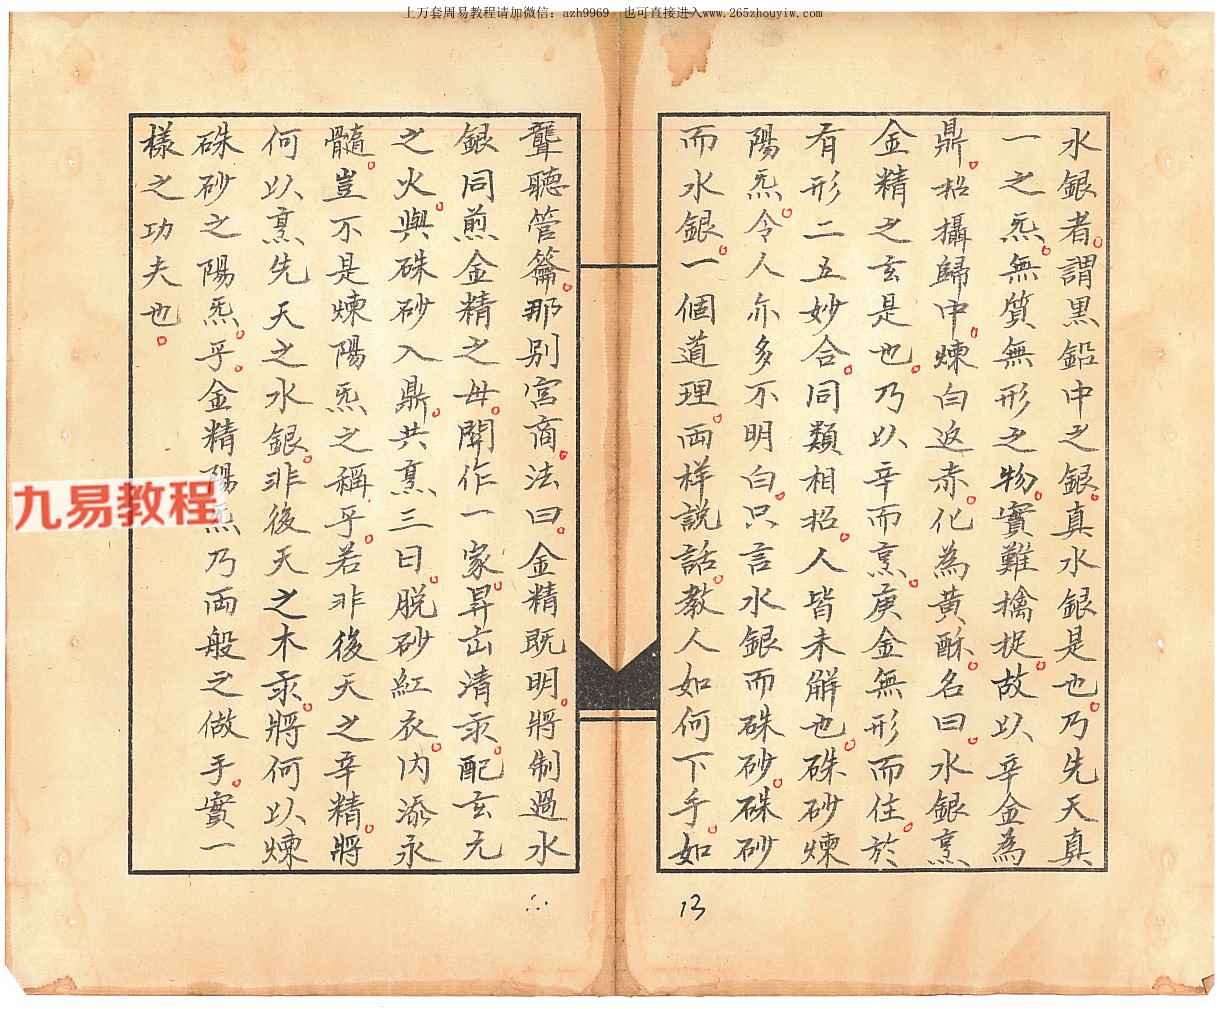 上万套周易教程请加微信：azh9969　也可直接进入www.265zhouyiw.com
水銀者。謂黑鉛中之銀。真水銀是也。乃先天真
一之炁。無質無形之物。實難擒捉。故以辛金為
鼎。招攝歸中。煉白返赤。化為黃酥。名曰。水銀烹
金精之玄是也。乃以辛而烹。庚金無形而住。於
有形二五妙合。同類相招。人皆未解也。硃砂煉
陽炁。令人亦多不明白。只言水銀而硃砂。硃砂
而水銀。一個道理。両样說話。教人如何下手。如
聾聽管籥。那別宮商。法曰。金精既明。將制過水
銀同煎金精之母。開作一家。昇出清汞。配玄元
之火。與硃砂入鼎。共烹三日。脱砂紅衣。内添永
髓。豈不是煉陽炁之稱乎。若非後天之辛精。將
何以烹先天之水銀。非後天之木汞。將何以煉
硃砂之陽炁。乎。金精陽炁乃両般之做手。實一
樣之功夫也。
13
九易教程